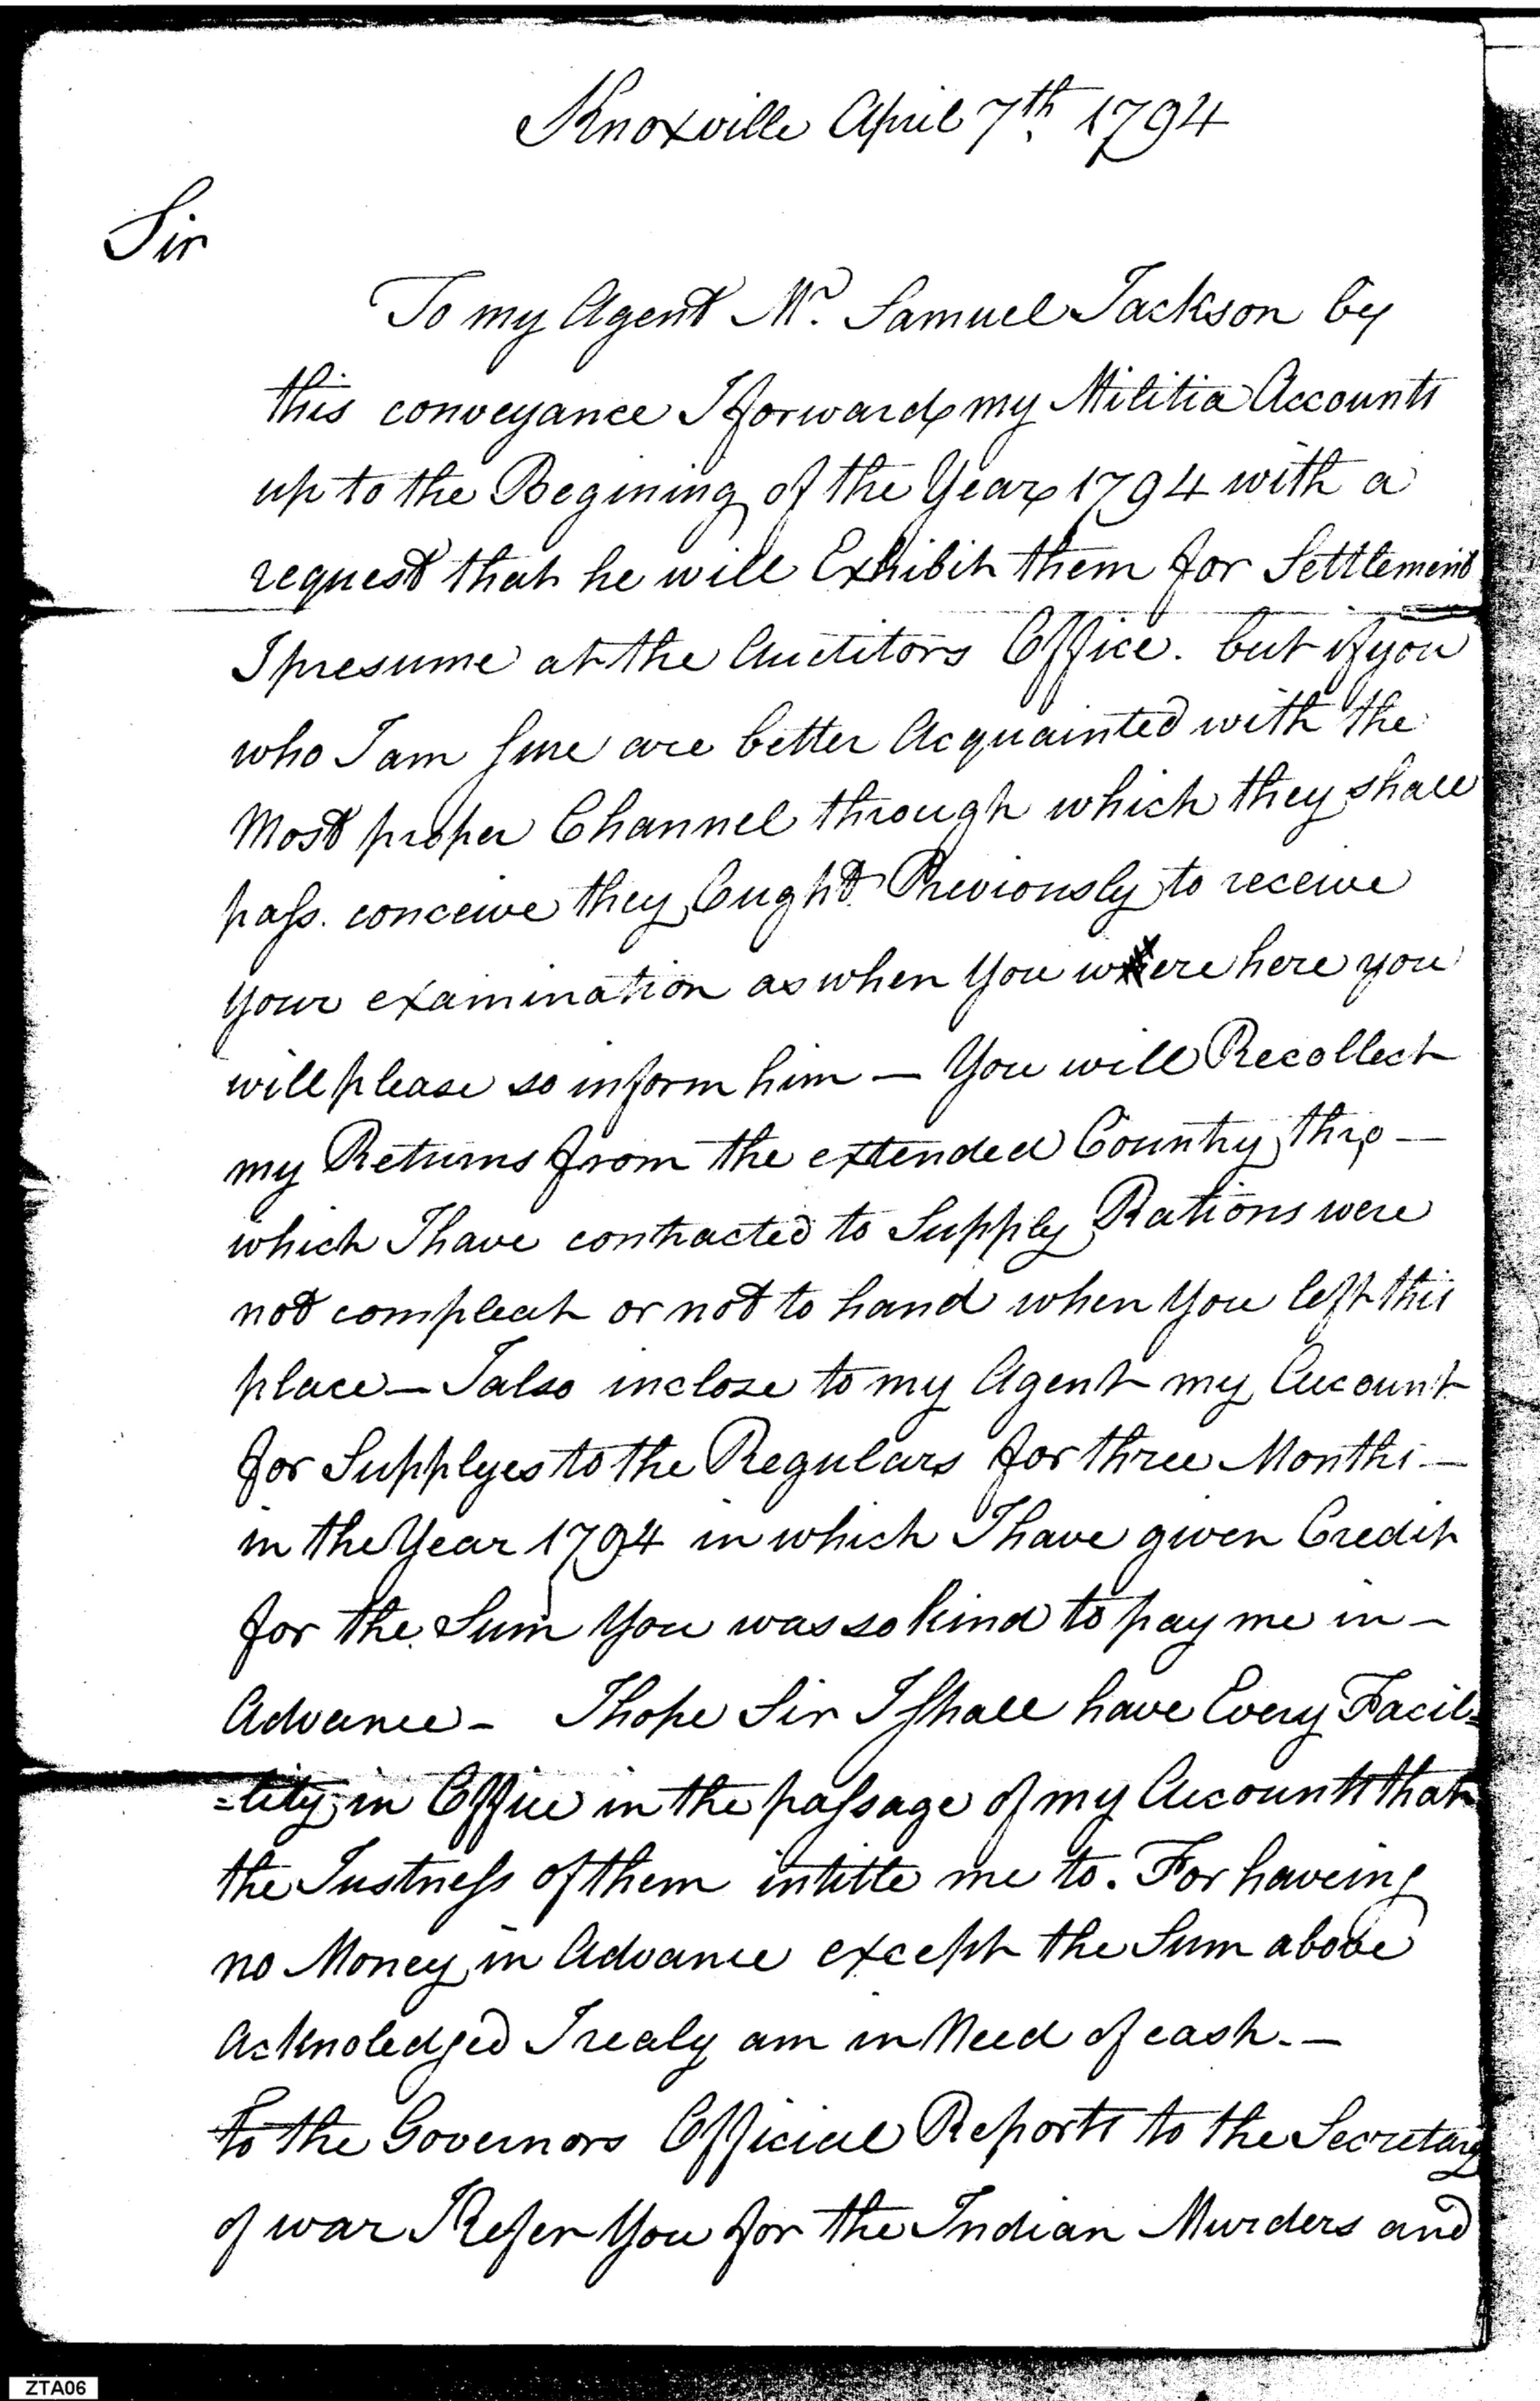 Knoxville April 7th 1794
Sir
To my Agent Mr. Samuel Jackson by
this conveyance I forward my Militia Accounts
up to the Begining of the Year 1794 with a
request that he will Exhibit them for Settlement
I presume at the Auditors Office. but if you
who I am sure are better Acquainted with the
Most proper Channel through which they shall
pass. conceive they Ought Previously to receive
your examination as when You were here you
will please so inform him — You will Recollect
my Returns from the extended Country thro —
which I have contracted to Supply Rations were
not compleat or not to hand when You left this
place — I also inclose to my Agent my Account
for Supplyes to the Regulars for three Months —
in the Year 1794 in which I have given Credit
for the Sum You was so kind to pay me in —
Advance — I hope Sir I shall have Every Facil=
=lity in Office in the passage of my Accounts that
the Justness of them intitle me to. For haveing
no Money in Advance except the Sum above
Acknoledged I realy am in Need of cash. —
To the Governors Official Reports to the Secretary
of war I Refer You for the Indian Murders and
ZTA06